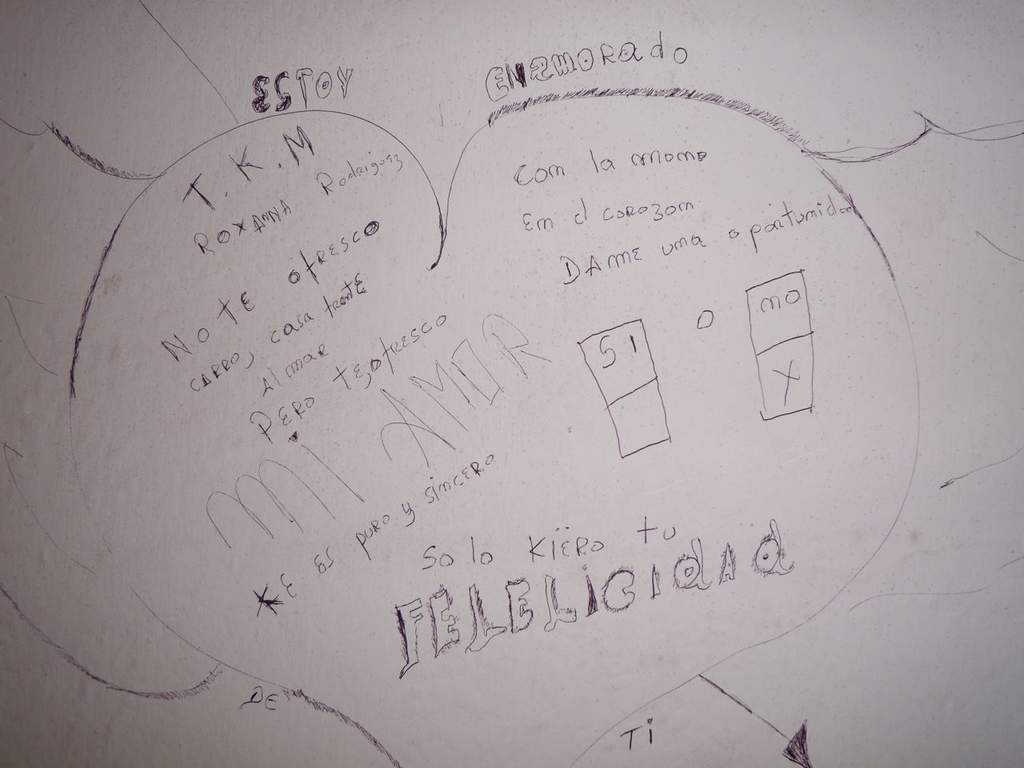 ESTOY ENAMORADO
T.K.M
ROXANNA Rodriguez
NO TE OfRESCO
CARRO, casa frente
Al mar
PERO TE OfRESCO
MI AMOR
KE ES puro y sincero
Com la mamo
Em el corozom
DAME uma opartumidad
SI O mo
X
Solo KIERO tu
FELELICIdAd
DE TI